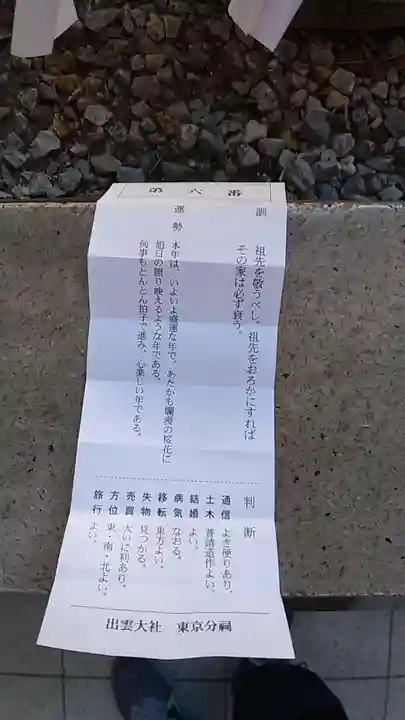 第六番
訓
祖先を敬うべし。祖先をおろかにすれば
その家は必ず衰う。
運勢
本年は、いよいよ盛運な年で、あたかも爛漫の桜花に
旭日の照り映えるような年である。
何事もとんとん拍子で進み、心楽しい年である。
判断
通信 よき便りあり。
土木 普請造作よい。
結婚 よい。
病気 なおる。
移転 東方よい。
失物 見つかる。
売買 大いに利あり。
方位 東・南・北よい。
旅行 よい。
出雲大社 東京分祠